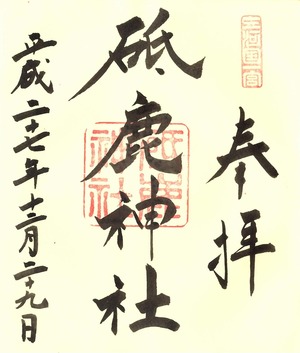 三河國一宮
奉拝
砥鹿神社
砥鹿神社
平成二十七年十二月二十九日